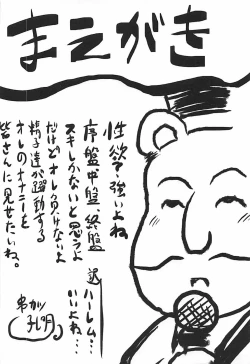 まえがき
性欲強いよね
序盤中盤終盤
スキしかないと思うよ
だけどオレ負けないよ
精子達が躍動する
オレのオナニーを
皆さんに見せたいね。
ハーレム…
いいよね…